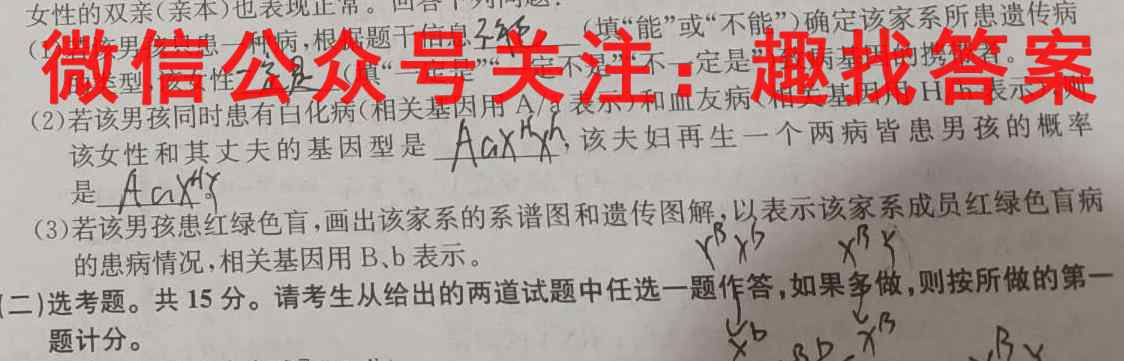 女性的双亲(亲本)也表现正常。回答下列问题:
(1)若该男孩只患一种病,根据题干信息 不能 (填“能”或“不能”)确定该家系所患遗传病
类型,该女性 (填“一定是”“一定不是”“不一定是”)致病基因的携带者。
微信公众号关注:趣找答案
(2)若该男孩同时患有白化病(相关基因用 A/a 表示)和血友病(相关基因用 H/h 表示),则
该女性和其丈夫的基因型是 AaX^H X^h,该夫妇再生一个两病皆患男孩的概率
是 AaX^H Y。
(3)若该男孩患红绿色盲,画出该家系的系谱图和遗传图解,以表示该家系成员红绿色盲病
X^B X^b X^B Y
的患病情况,相关基因用 B、b 表示。
(二)选考题。共 15 分。请考生从给出的两道试题中任选一题作答,如果多做,则按所做的第一
题计分。
X^b X^B